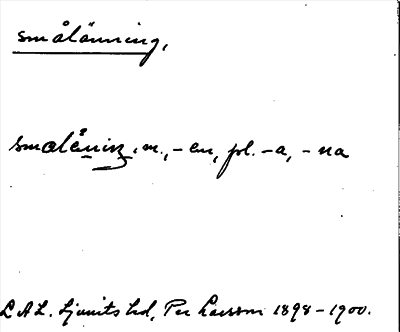 smålänning,
smalä̊niŋ, m., -en, pl. -a, -na
L.A.L. Ljunits hd, Per Larsson 1898-1900.